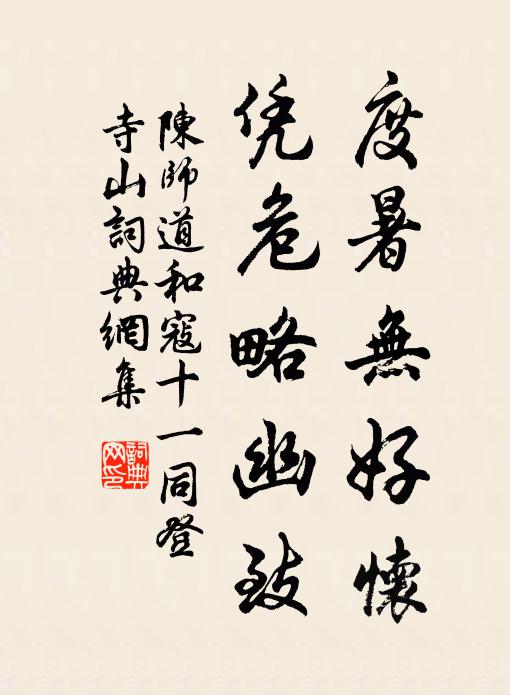 度暑無好懷
凭危略幽致
陳師道和寇十一同登
寺山詞典網集
詞典
网印